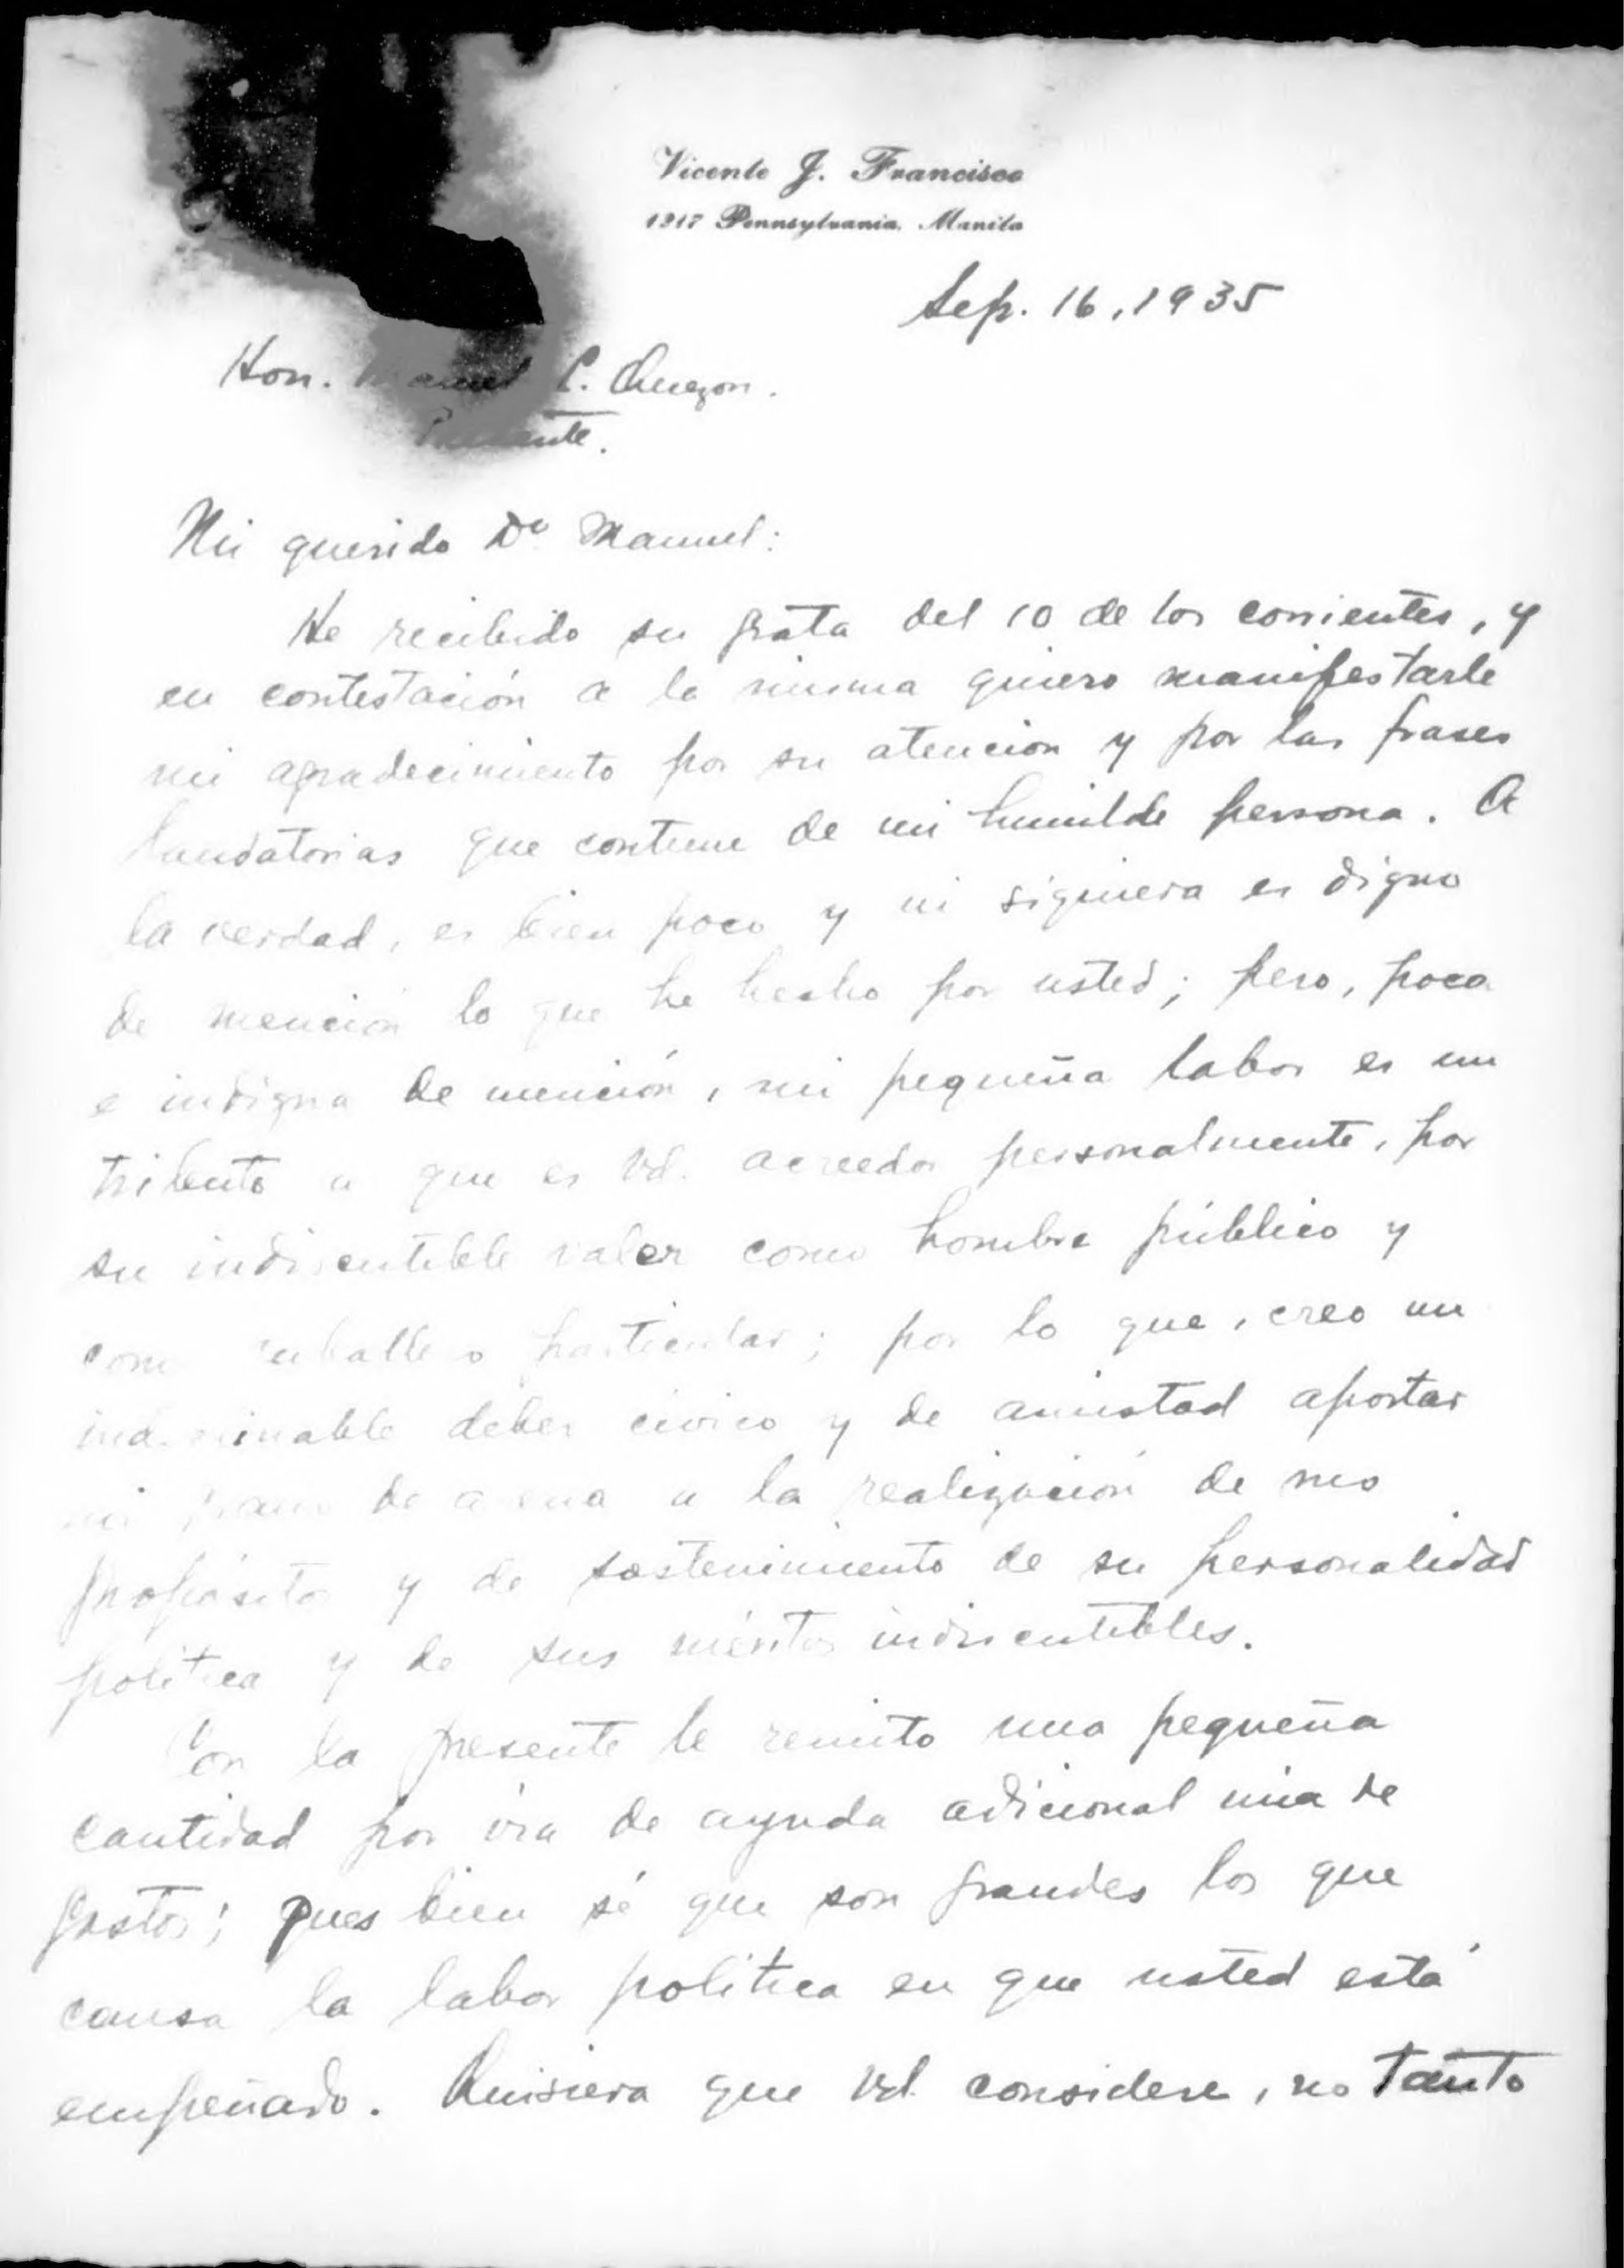 Vicente J. Francisco
1917 Pennsylvania, Manila
Sep. 16, 1935
Hon. Manuel L. Quezon.
Presente.
Mi querido Dn. Manuel:
He recibido su grata del 10 de los corrientes, y
en contestación a la misma quiero manifestarle
mi agradecimiento por su atencion y por las frases
laudatorias que contiene de mi humilde persona. A
la verdad, es bien poco y ni siquiera es digno
de mención lo que he hecho por usted; pero, poca
e indigna de mención, mi pequeña labor es un
tributo a que es Vd. acreedor personalmente, por
su indiscutible valer como hombre público y
como caballero particular; por lo que, creo un
indeclinable deber cívico y de amistad aportar
mi grano de arena a la realización de sus
propósitos y de sostenimiento de su personalidad
política y de sus méritos indiscutibles.
Con la presente le remito una pequeña
cantidad por vía de ayuda adicional mía de
gastos; pues bien sé que son grandes los que
causa la labor política en que usted está
empeñado. Quisiera que Vd. considere, no tanto